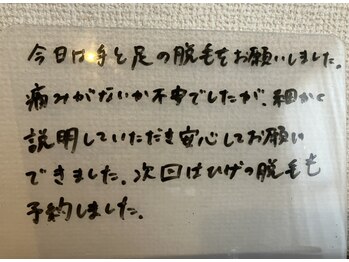 今日は手と足の脱毛をお願いしました。
痛みがないか不安でしたが、細かく
説明していただき安心してお願い
できました。次回はひげの脱毛も
予約しました。